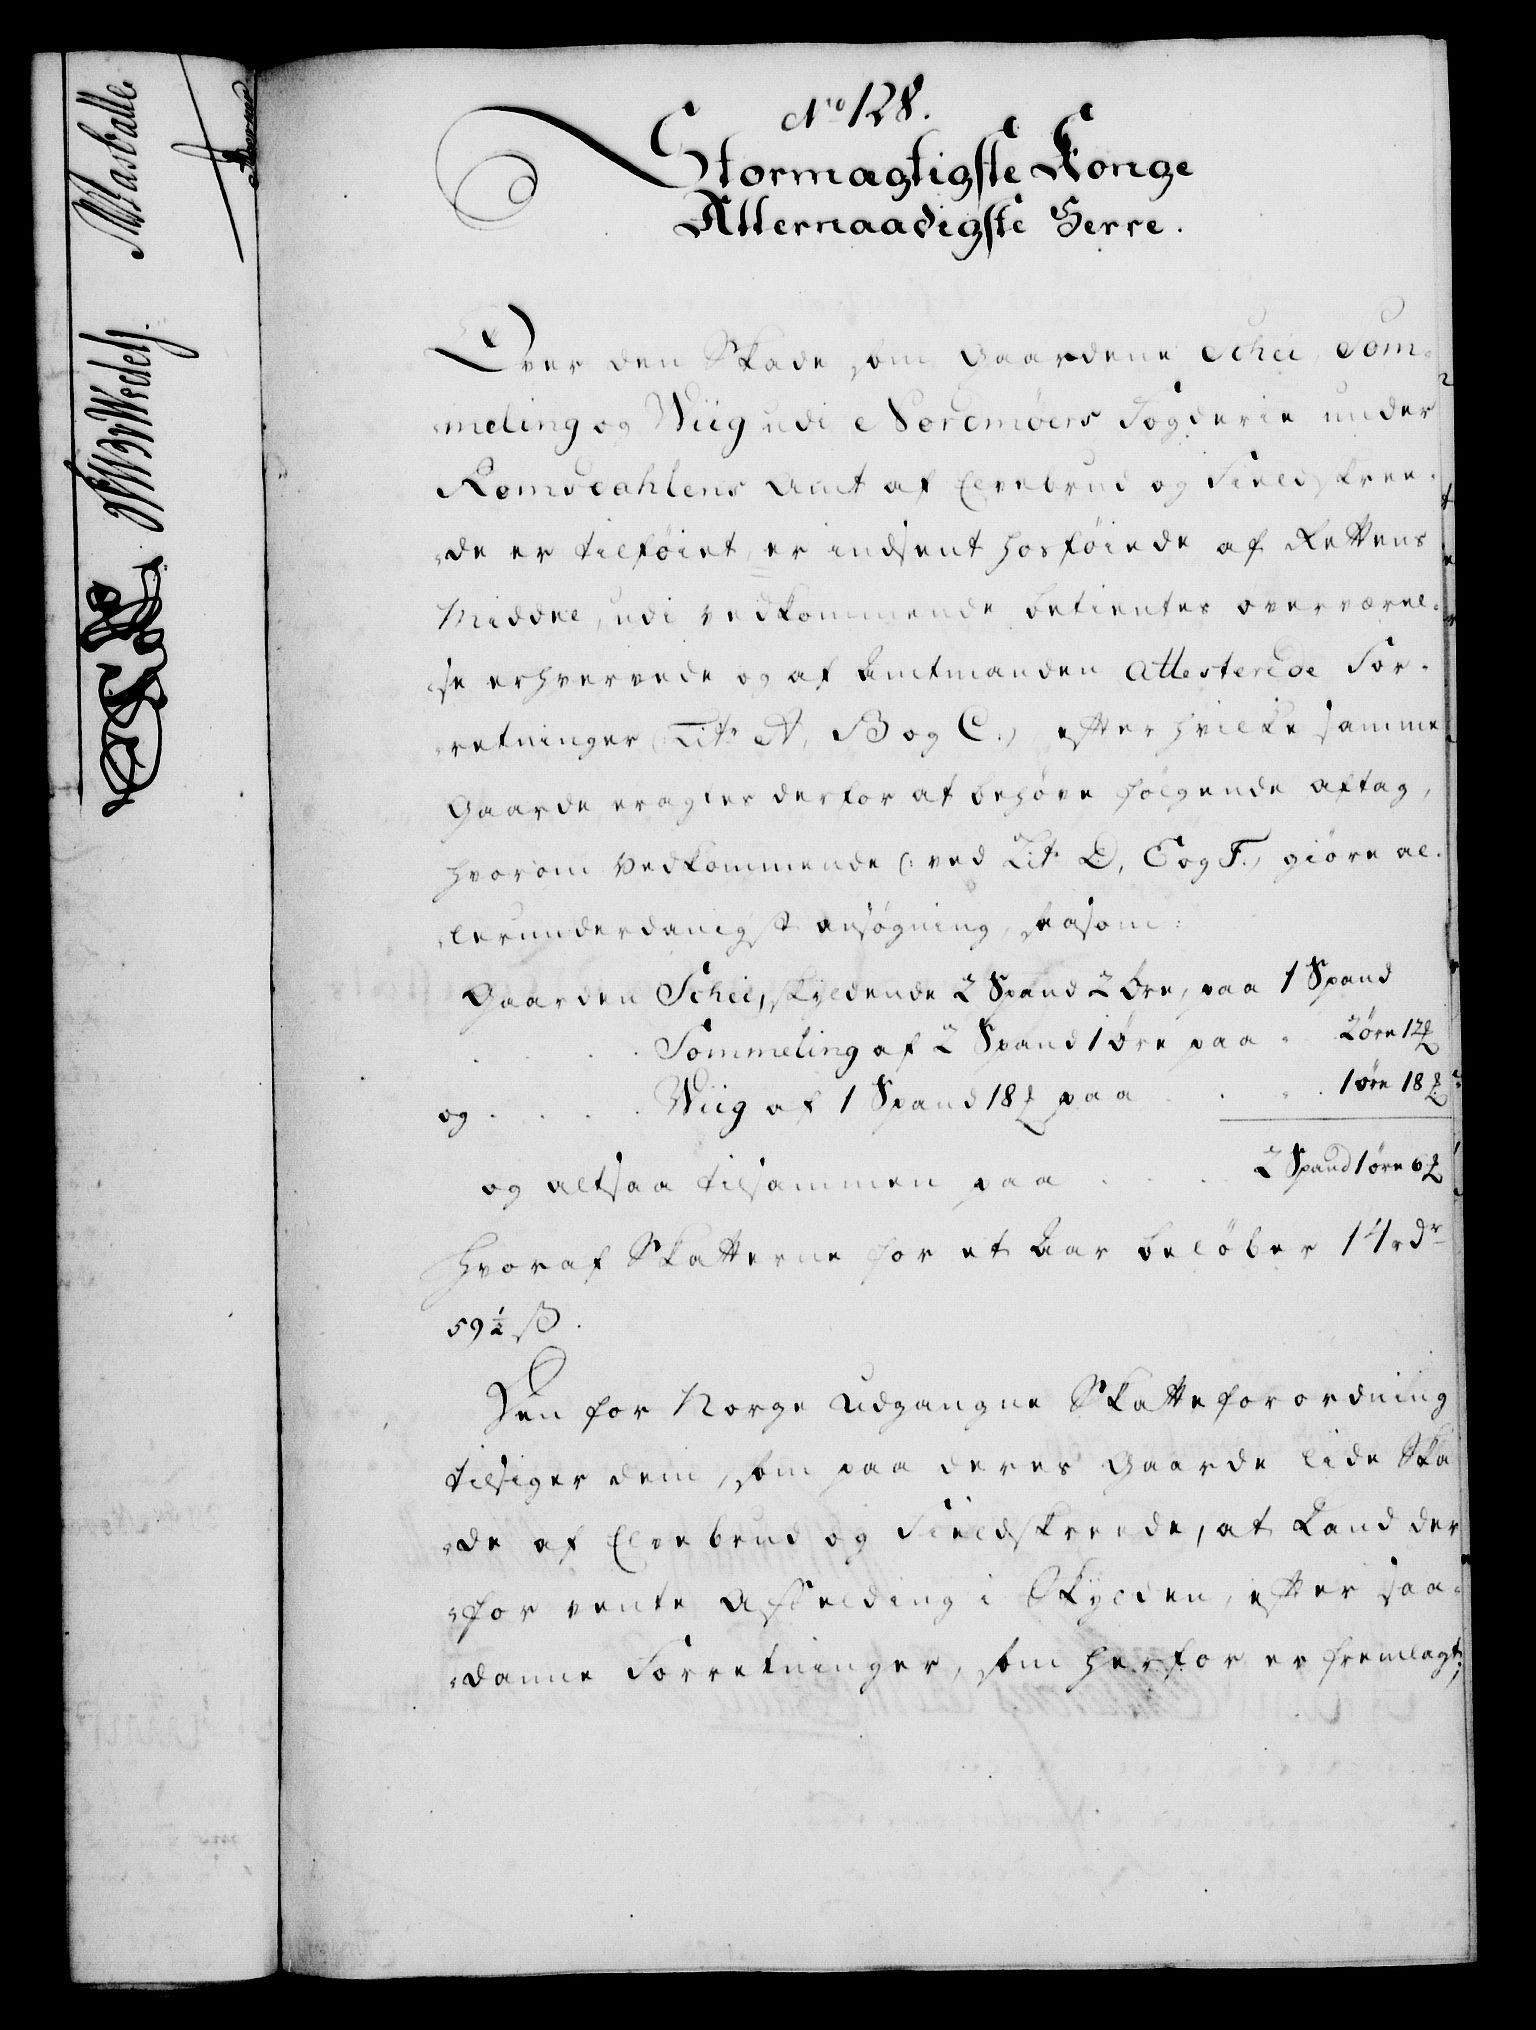 No 128.
Stormægtigste Konge
Allernaadigste Herre.
Over den Skade som Gaardene Schei, Som-
meling og Wiig udi Nordmöers Fogderie under
Romsdahlens Amt af Elvebrud og Fieldskree-
de er tilføiet, er indsent hosføiede af Rettens
Middel, udi vedkommende betientes overværel-
se erhvervede og af Amtmanden Attesterede For-
retninger (: Lit. A, B og C.) efter hvilke samme
Gaarde eragtes derfor at behøve følgende aftag,
hvorom Vedkommende (: ved Lit. D, E og F.) giøre al-
lerunderdanigst ansøgning, saasom:
Gaarden Schei, skyldende 2 Spand 2 Øre, paa 1 Spand
. . . . Sommeling af 2 Spand 1 Øre paa . 2 öre 12 ℔
og . . . . Wiig af 1 Spand 18 ℔ paa . . . 1 øre 18 ℔
og altsaa tilsammen paa . . . . 2 Spand 1 øre 6 ℔
Hvoraf Skatterne for et Aar beløber 14 rdr
59½ ß.
Den for Norge udgangne Skatteforordning
tilsiger dem, som paa deres Gaarde lide Ska
de af Elvebrud og Fieldskreede, at Land der
for vente Affelding i Skylden, efter saa-
danne Forretninger, som herfor er fremlagt;